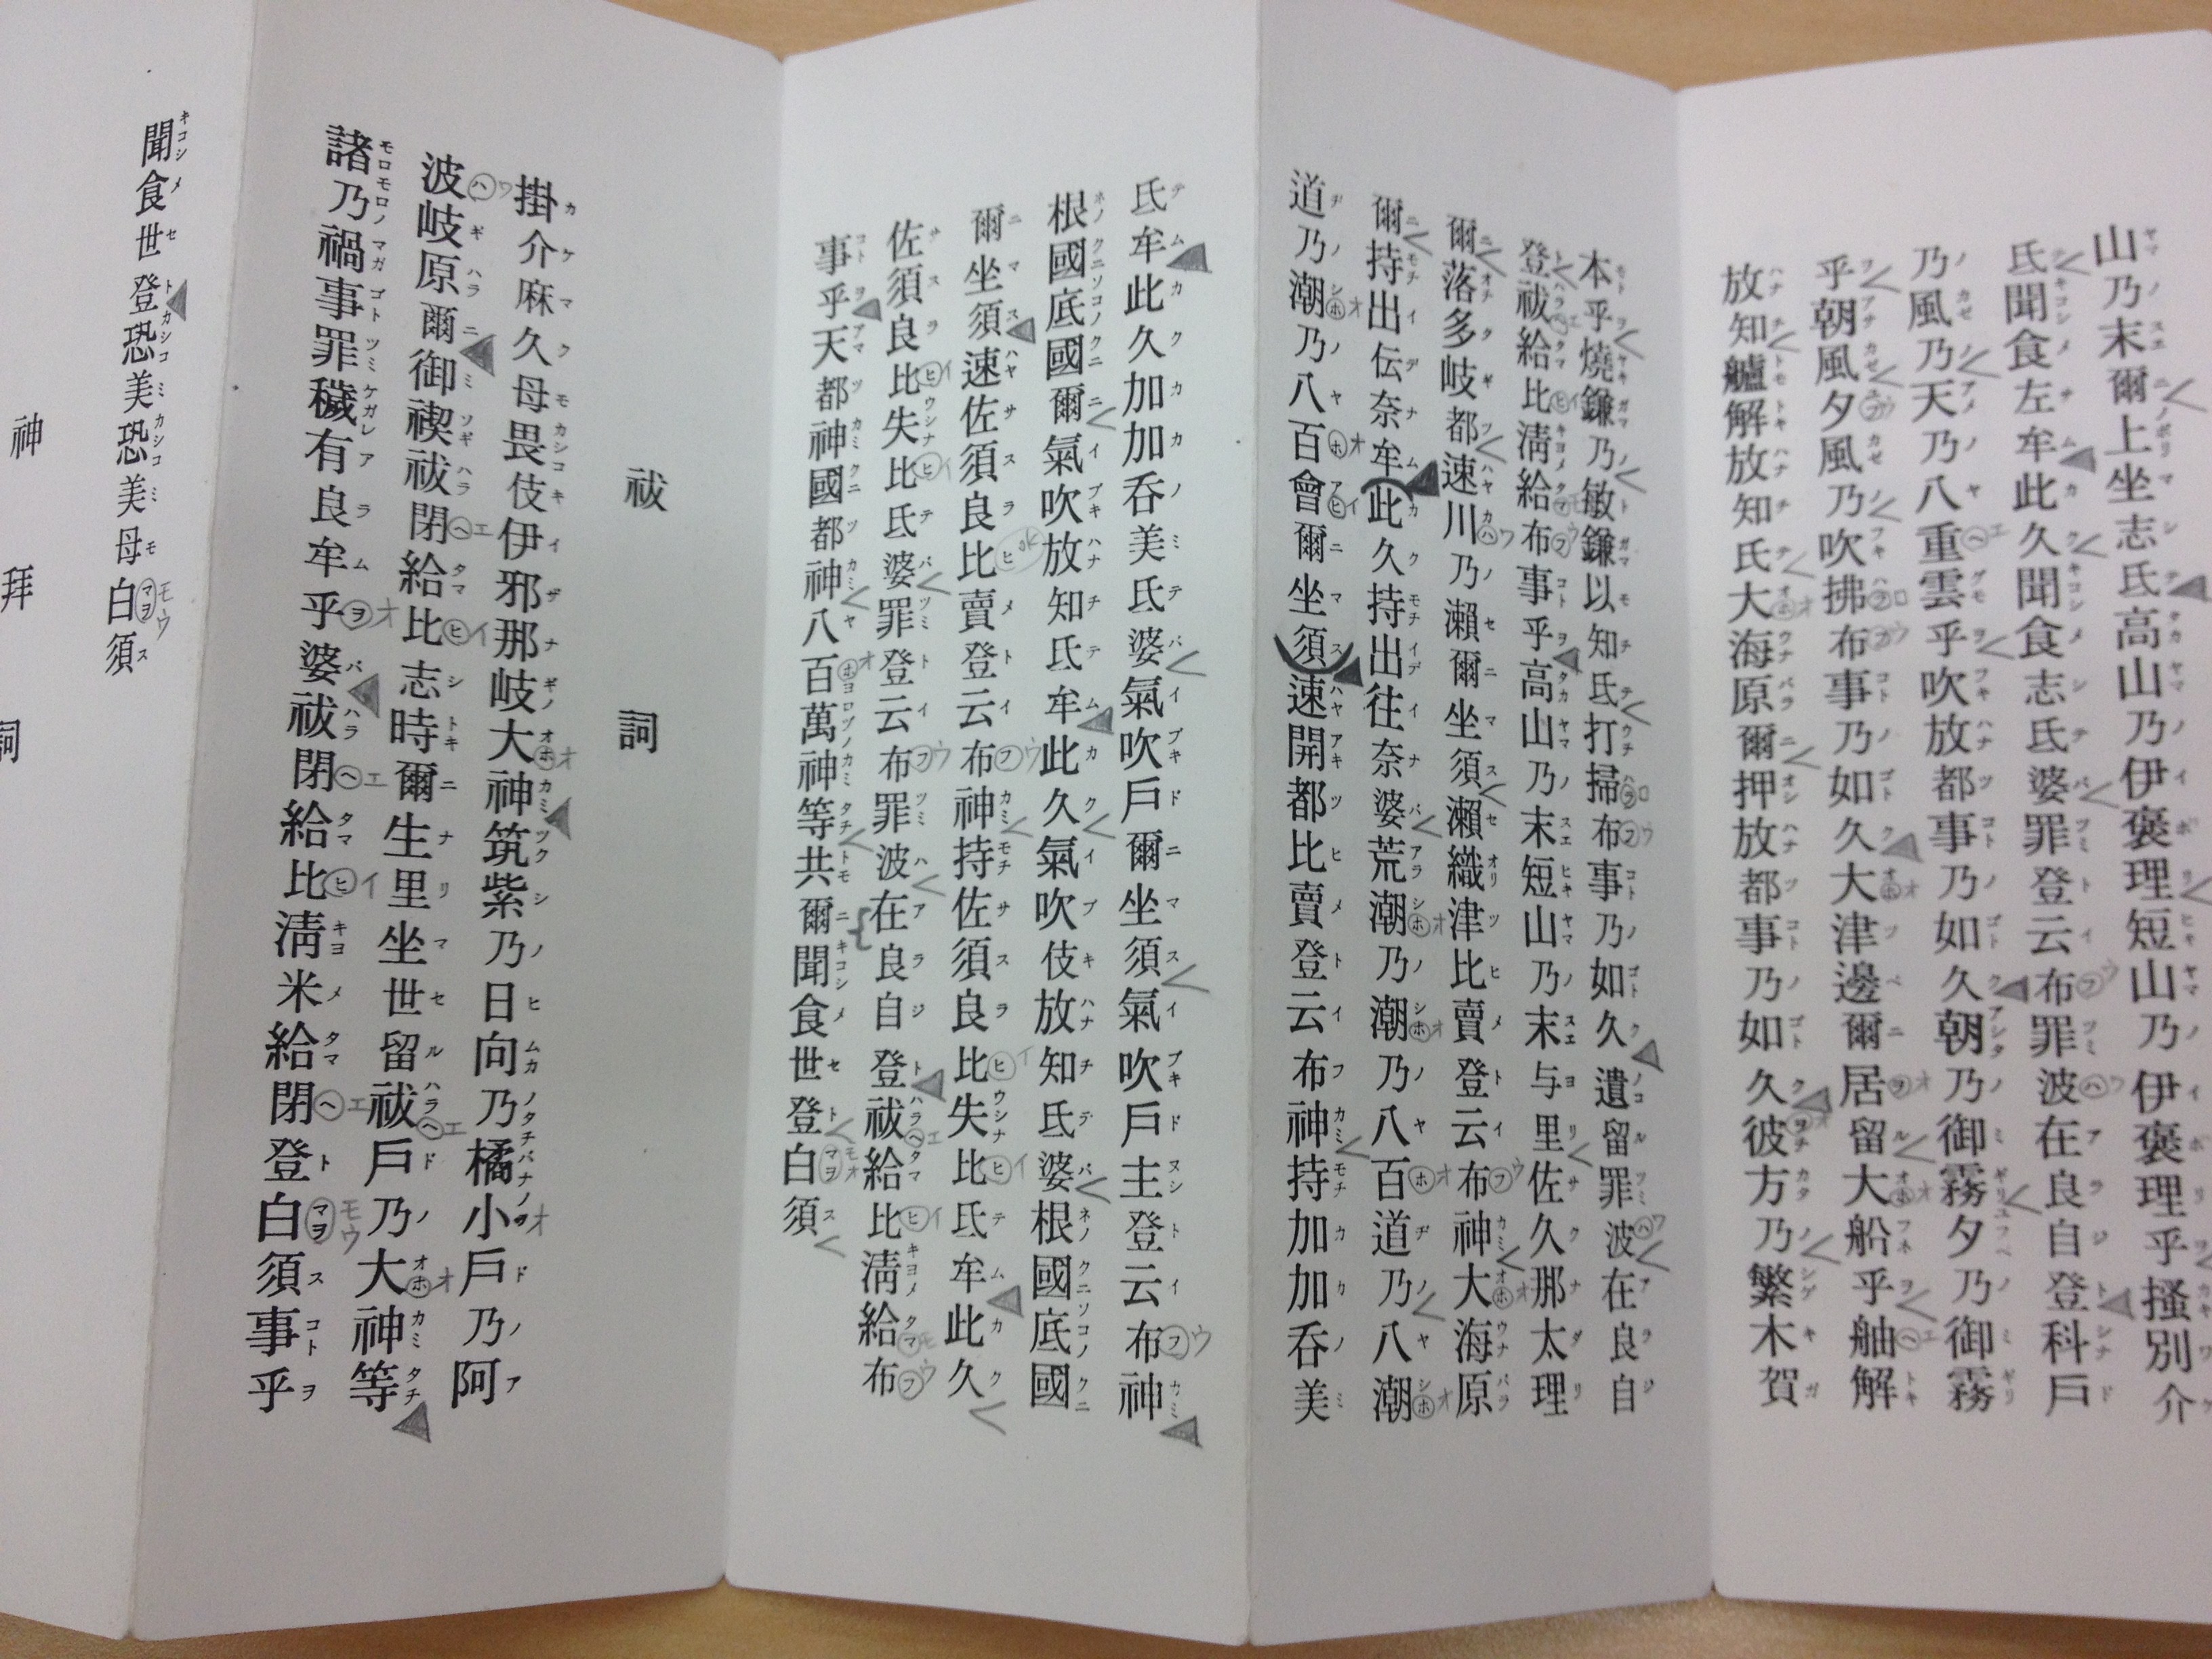 山乃末爾上坐志氐高山乃伊褒理短山乃伊褒理乎搔別介
氐聞食左牟此久聞食志氐婆罪登云布罪波在良自登科戶
乃風乃天乃八重雲乎吹放都事乃如久朝乃御霧夕乃御霧
乎朝風夕風乃吹拂布事乃如久大津邊爾居留大船乎舳解
放知艫解放知氐大海原爾押放都事乃如久彼方乃繁木賀
本乎燒鎌乃敏鎌以知氐打掃布事乃如久遺留罪波在良自
登祓給比淸給布事乎高山乃末短山乃末与里佐久那太理
爾落多岐都速川乃瀨爾坐須瀨織津比賣登云布神大海原
爾持出伝奈牟此久持出往奈婆荒潮乃潮乃八百道乃八潮
道乃潮乃八百會爾坐須速開都比賣登云布神持加加呑美
氐牟此久加加呑美氐婆氣吹戶爾坐須氣吹戶主登云布神
根國底國爾氣吹放知氐牟此久氣吹伎放知氐婆根國底國
爾坐須速佐須良比賣登云布神持佐須良比失比氐牟此久
佐須良比失比氐婆罪登云布罪波在良自登祓給比淸給布
事乎天都神國都神八百萬神等共爾聞食世登白須
祓詞
掛介麻久母畏伎伊邪那岐大神筑紫乃日向乃橘小戶乃阿
波岐原爾御禊祓閉給比志時爾生里坐世留祓戶乃大神等
諸乃禍事罪穢有良牟乎婆祓閉給比淸米給閉登白須事乎
聞食世登恐美恐美母白須
神拜詞